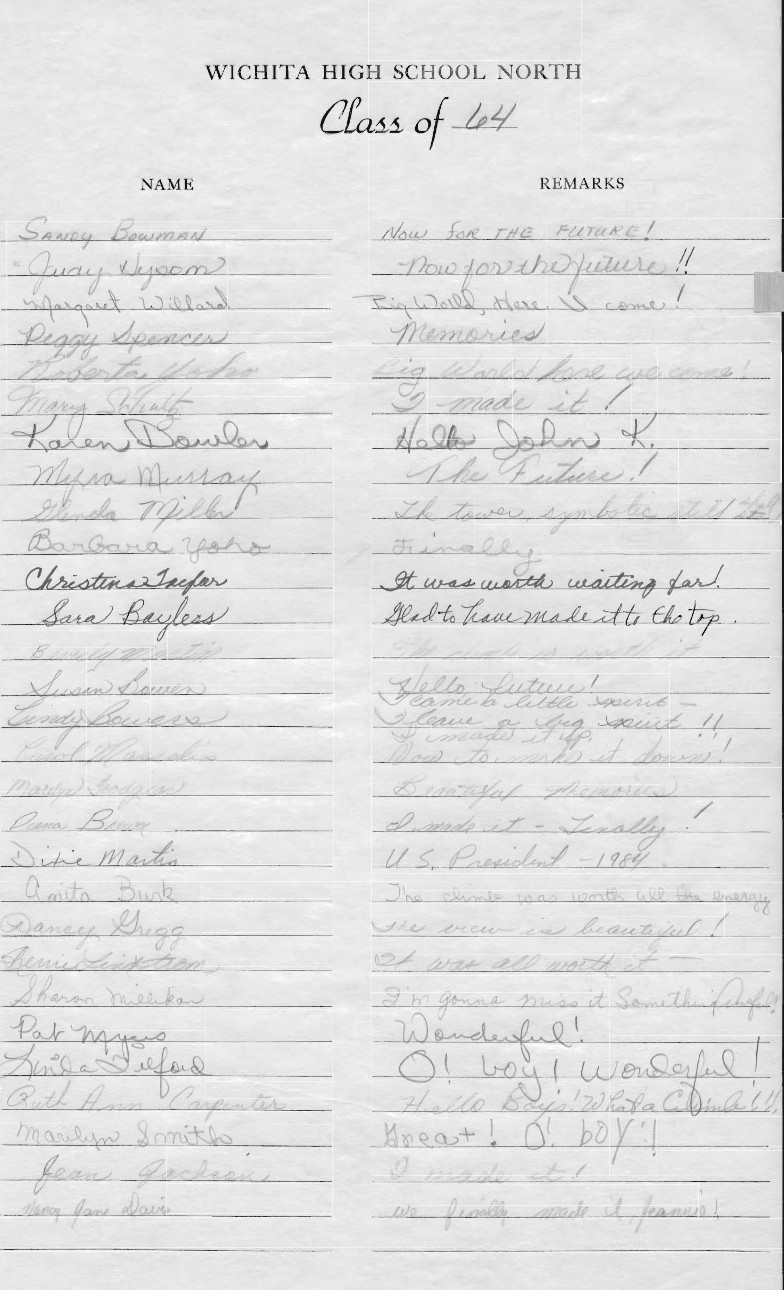 WICHITA HIGH SCHOOL NORTH
Class of 64
NAME REMARKS
Sandy Bowman Now for the future!
Judy Dyson Now for the future!!
Margaret Willard Big World, Here I come!
Peggy Spencer Memories
Roberta Yoho Big World here we come!
Mary Schultz I made it!
Karen Bowler Hello John K.
Myra Murray The Future!
Glenda Miller The tower, symbolic still
Barbara Yoho Finally
Christina It was worth waiting for!
Sara Bayless Glad to have made it to the top.
Beverly Martin The climb is worth it
Susan Bowen Hello future!
Cindy Bowers I came a little spirit -
I leave a big spirit!!
I made it up,
Carol Now to make it down!
Marilyn Beautiful Memories
I made it - Finally!
Dixie Martin U.S. President - 1984
Anita Busk The climb was worth all the energy
Nancy Gregg The view is beautiful!
It was all worth it -
Sharon Millikan I'm gonna miss it Something Awful!
Pat Myers Wonderful!
Linda Telford O! boy! Wonderful!
Ruth Ann Carpenter Hello Boys! What a Climb!!!
Marilyn Smith Great! O! boy!
Jean Jackson I made it!
Nancy Jane Davis we finally made it, Jeannie!